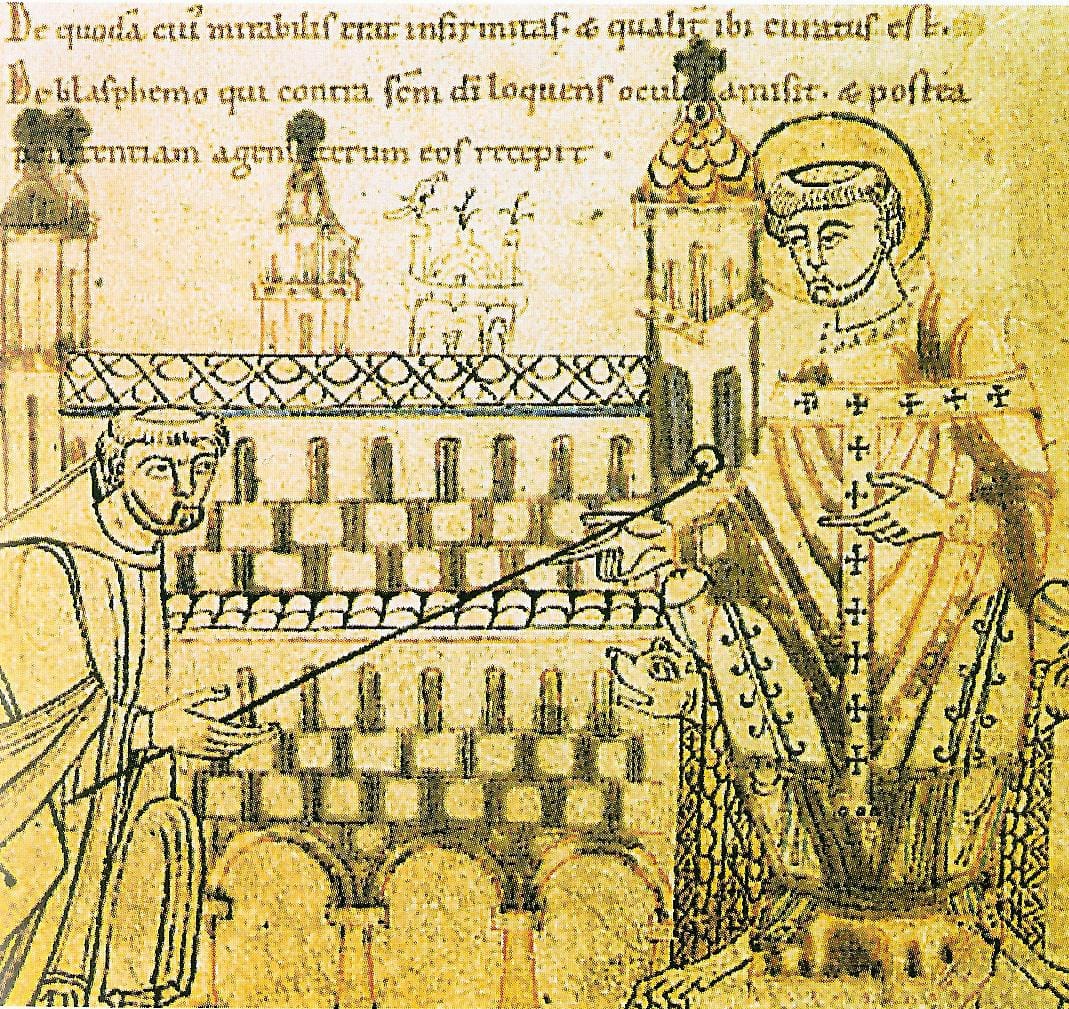 De quodā cui' mirabilis erat infirmitas. & qualit̄ ibi curatus est.
De blasphemo qui contra sc̄m dī loquens oculos amisit. & postea
penitentiam agens iterum eos recepit.